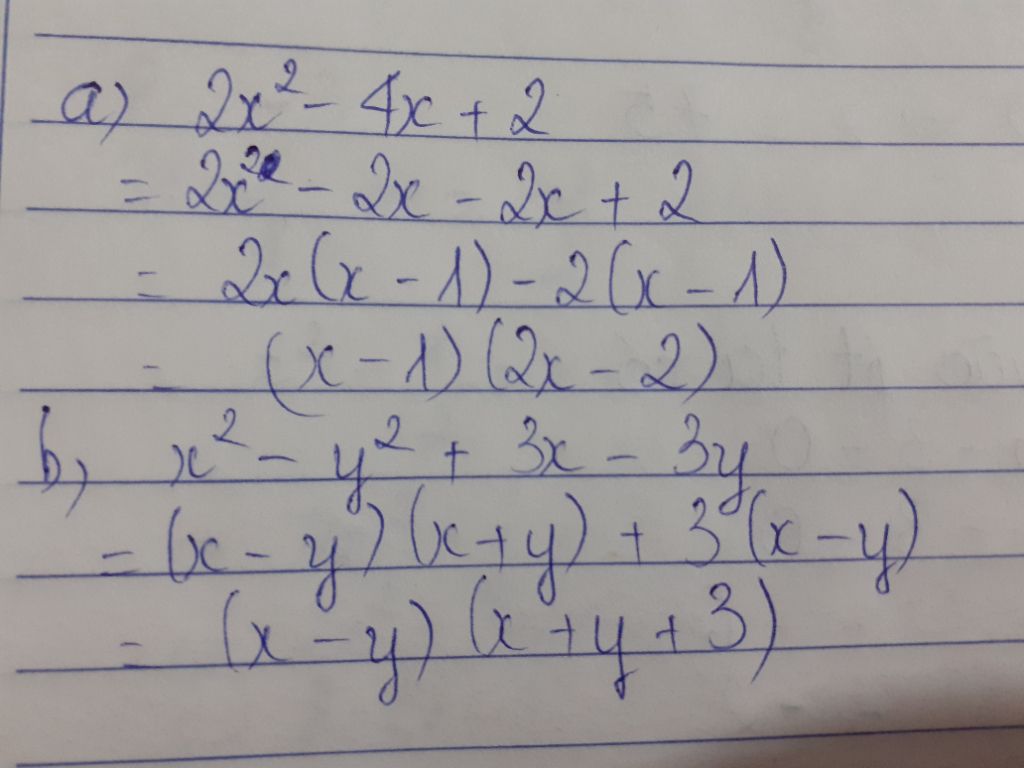 a) 2x² - 4x + 2
= 2x² - 2x - 2x + 2
= 2x(x - 1) - 2(x - 1)
= (x - 1)(2x - 2)
b, x² - y² + 3x - 3y
= (x - y)(x + y) + 3(x - y)
= (x - y)(x + y + 3)